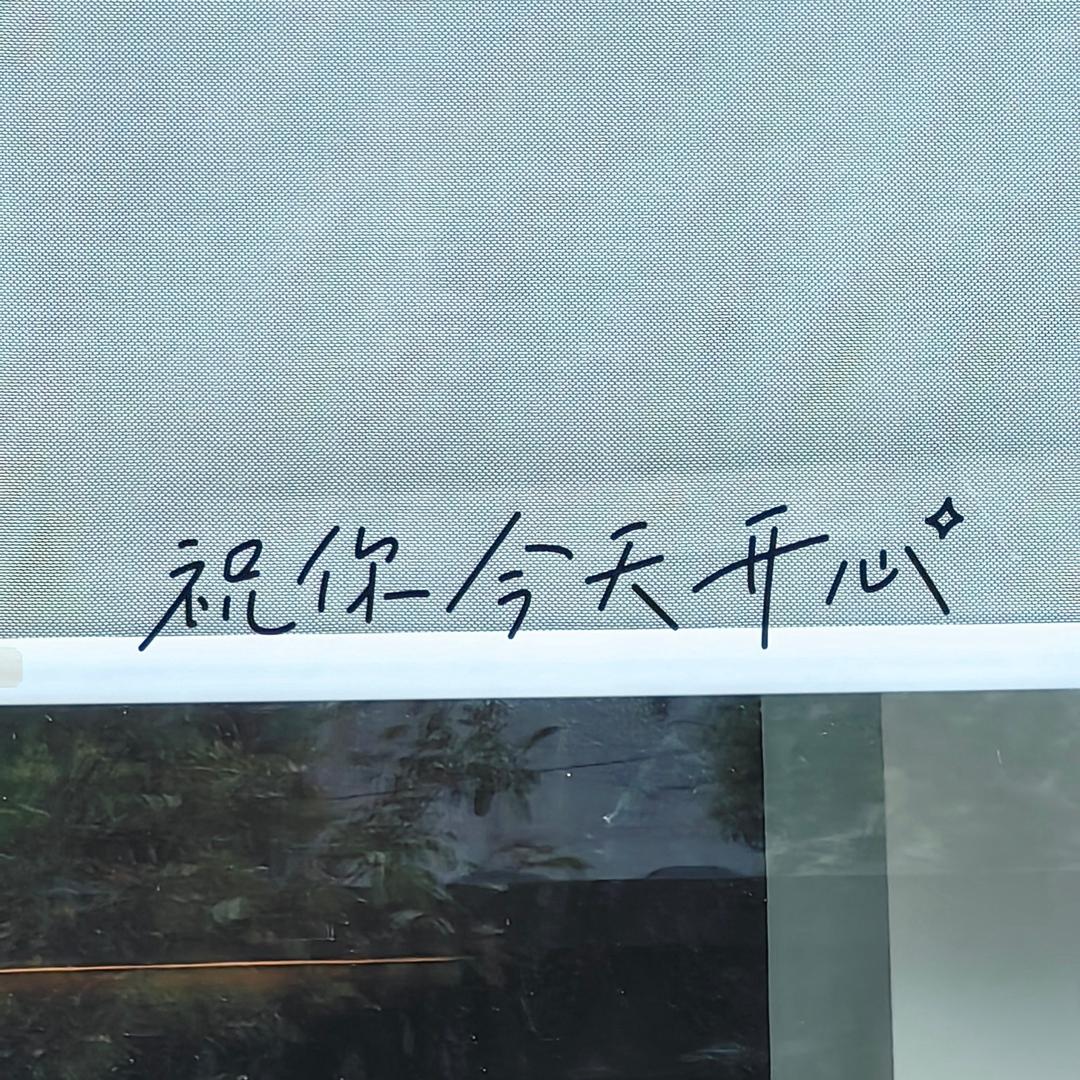 祝你今天开心